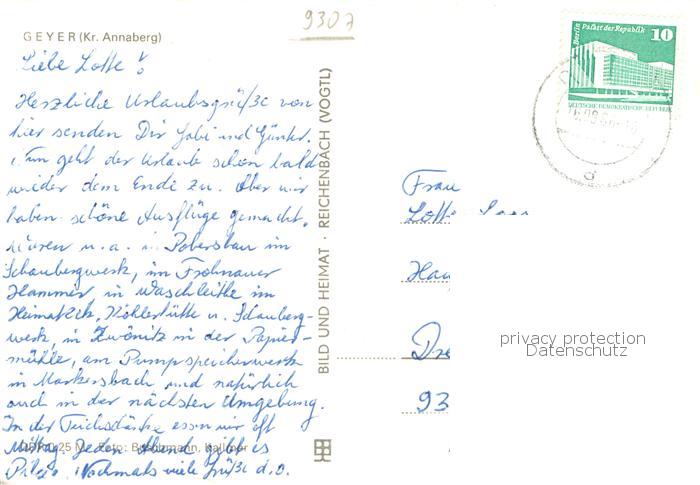 9307
GEYER (Kr. Annaberg)
Liebe Lotte!
Herzliche Urlaubsgrüße von
hier senden Dir Gabi und Günter.
Nun geht der Urlaub schon bald
wieder dem Ende zu. Aber wir
haben schöne Ausflüge gemacht,
waren u. a. in Pobershau im
Schaubergwerk, im Frohnauer
Hammer in Waschleithe im
Heimateck, Köhlerhütte u. Schauberg-
werk, in Zwönitz in der Papier-
mühle, am Pumpspeicherwerk
in Markersbach und natürlich
auch in der nächsten Umgebung.
In der Teichschänke essen wir oft
Mittag. Jeden Abend gibt es
Nochmals viele Grüße d. O.
BILD UND HEIMAT · REICHENBACH (VOGTL)
Berlin Palast der Republik
10
DEUTSCHE DEMOKRATISCHE REPUBLIK
Frau
Lotte
Hau
Dre
93
privacy protection
Datenschutz